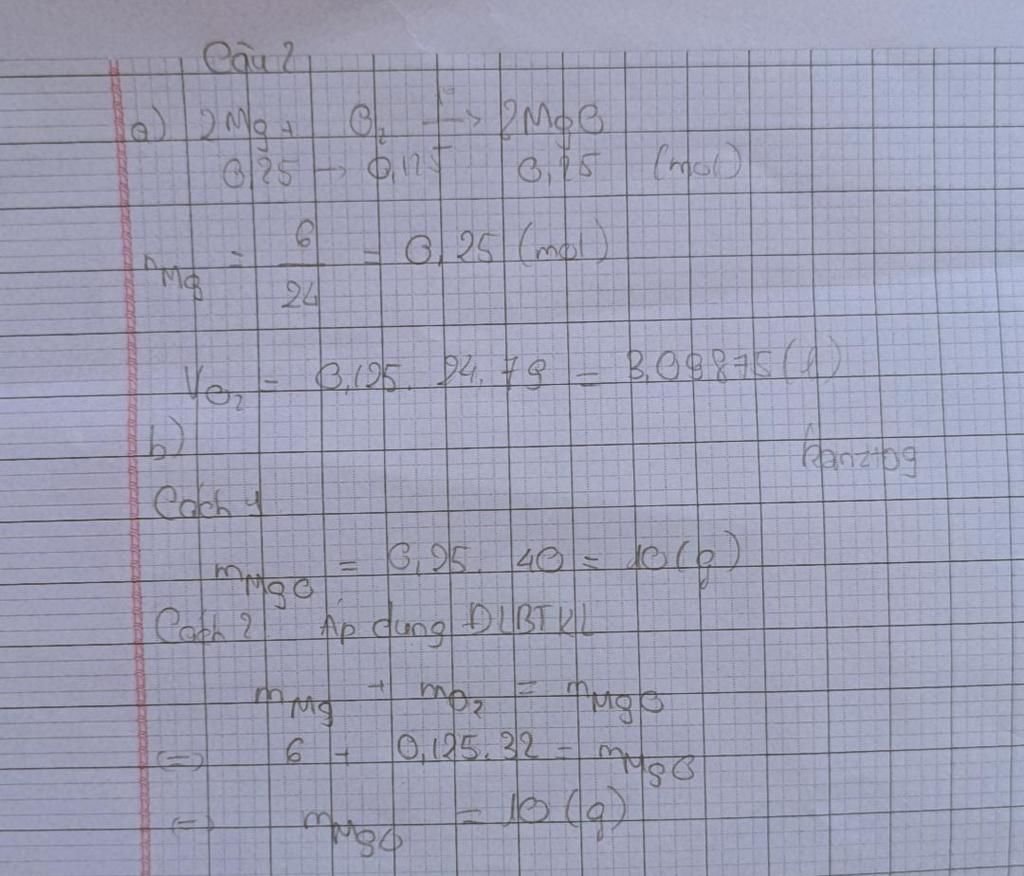 Câu 2
a) 2Mg + O₂ → 2MgO
0,25 → 0,125 0,25 (mol)
nMg = 6/24 = 0,25 (mol)
VO₂ = 0,125. 24,79 = 3,09875 (l)
b)
Cách 1
mMgO = 0,25. 40 = 10 (g)
Cách 2 Áp dụng ĐLBTKL
mMg + mO₂ = mMgO
<=> 6 + 0,125.32 = mMgO
<=> mMgO = 10 (g)